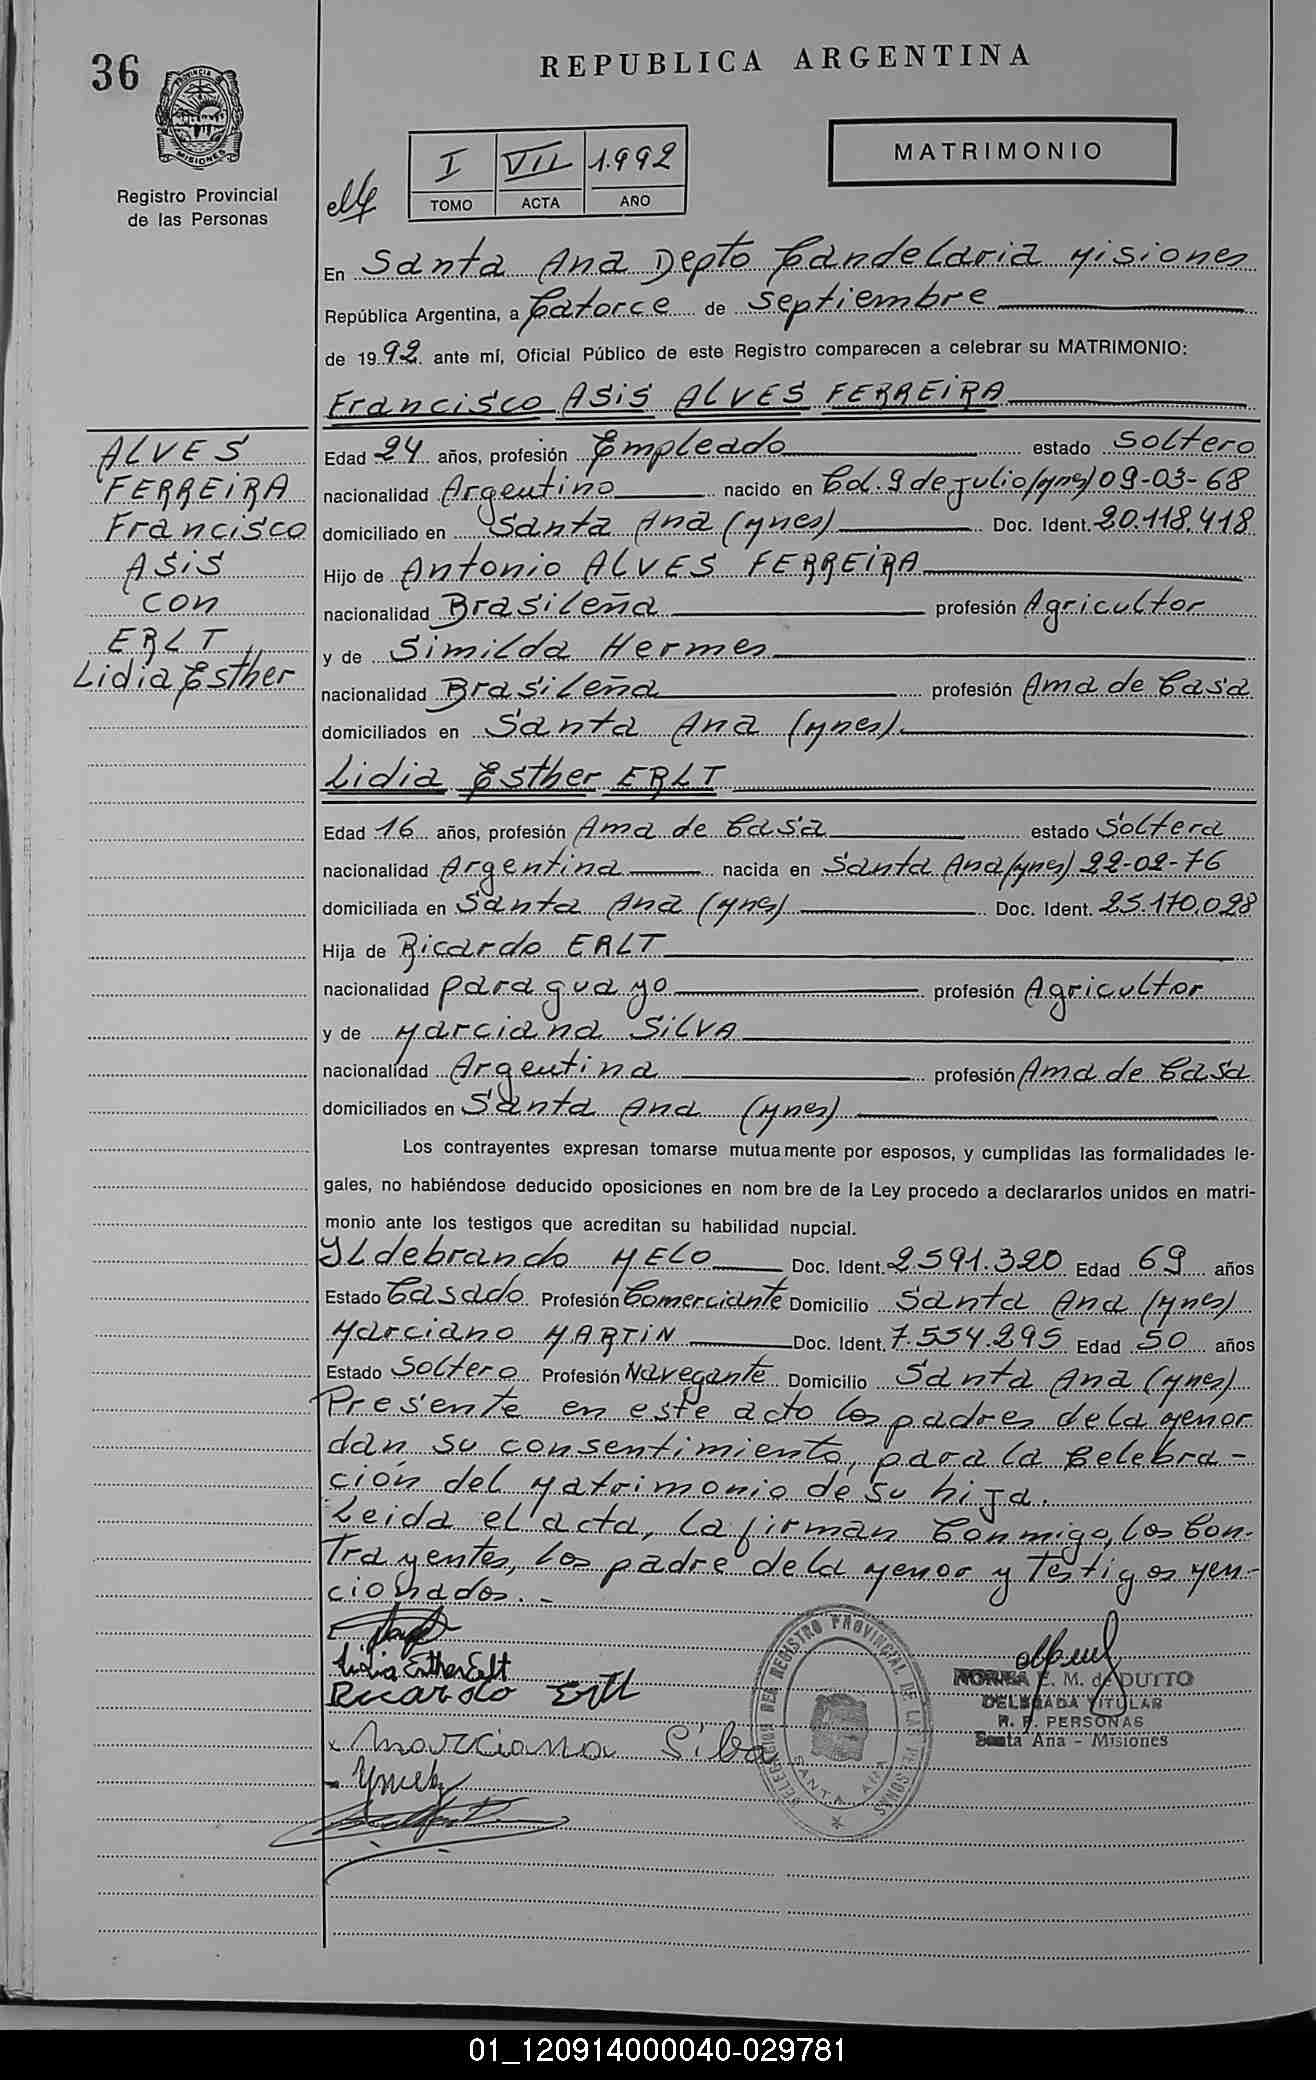 36
PROVINCIA
MISIONES
Registro Provincial
de las Personas
REPUBLICA ARGENTINA
MATRIMONIO
I VII 1.992
TOMO ACTA AÑO
En Santa Ana Depto Candelaria Misiones
República Argentina, a Catorce de Septiembre
de 1992. ante mí, Oficial Público de este Registro comparecen a celebrar su MATRIMONIO:
Francisco ASIS ALVES FERREIRA
ALVES
FERREIRA
Francisco
ASIS
CON
ERLT
Lidia Esther
Edad 24 años, profesión Empleado estado Soltero
nacionalidad Argentino nacido en Col. 9 de Julio (Mnes) 09-03-68
domiciliado en Santa Ana (Mnes) Doc. Ident. 20.118.418
Hijo de Antonio ALVES FERREIRA
nacionalidad Brasileña profesión Agricultor
y de Similda Hermes
nacionalidad Brasileña profesión Ama de Casa
domiciliados en Santa Ana (Mnes).
Lidia Esther ERLT
Edad 16 años, profesión Ama de Casa estado Soltera
nacionalidad Argentina nacida en Santa Ana (Mnes) 22-02-76
domiciliada en Santa Ana (Mnes) Doc. Ident. 25.170.028
Hija de Ricardo ERLT
nacionalidad paraguayo profesión Agricultor
y de Marciana SILVA
nacionalidad Argentina profesión Ama de Casa
domiciliados en Santa Ana (Mnes)
Los contrayentes expresan tomarse mutuamente por esposos, y cumplidas las formalidades le-
gales, no habiéndose deducido oposiciones en nom bre de la Ley procedo a declararlos unidos en matri-
monio ante los testigos que acreditan su habilidad nupcial.
Ildebrando MELO Doc. Ident. 2.591.320 Edad 69 años
Estado Casado Profesión Comerciante Domicilio Santa Ana (Mnes)
Marciano MARTIN Doc. Ident. 7.554.295 Edad 50 años
Estado Soltero Profesión Navegante Domicilio Santa Ana (Mnes)
Presente en este acto los padres de la Menor
dan su consentimiento, para la Celebra-
ción del Matrimonio de su hija.
Leida el acta, la firman Conmigo, los Con-
trayentes, los padre de la Menor y Testigos Men-
cionados.-
Lidia Esther Erlt
Ricardo Erlt
Marciana Silba
DELEGACION DEL REGISTRO PROVINCIAL DE LAS PERSONAS
SANTA ANA
NORMA E. M. de DUITO
DELEGADA TITULAR
R. P. PERSONAS
Santa Ana - Misiones
01_120914000040-029781